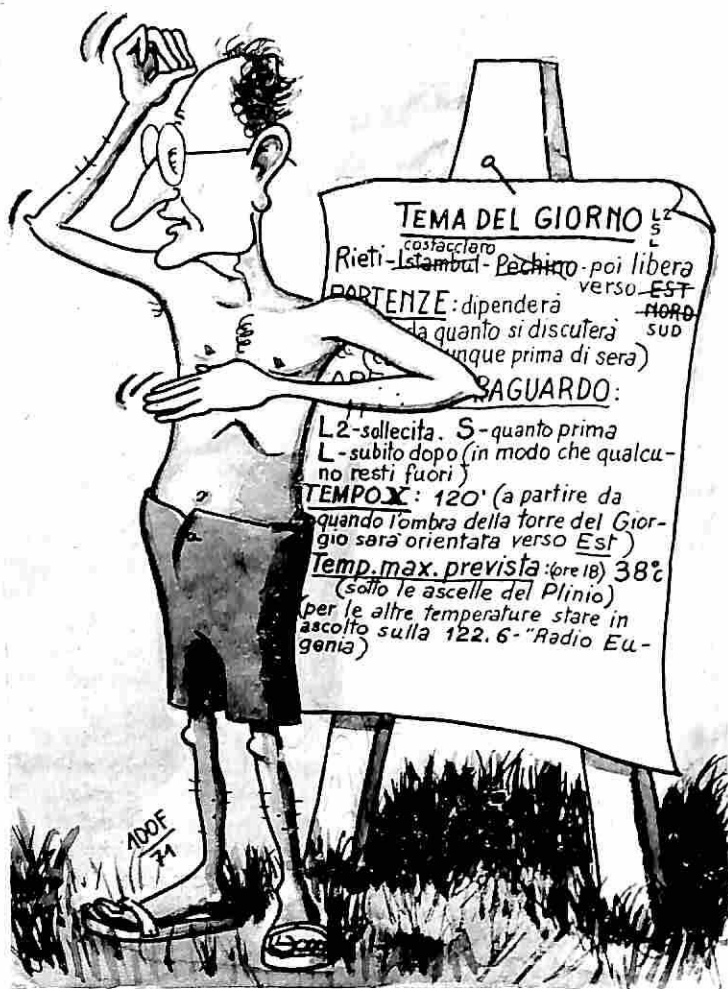 TEMA DEL GIORNO L2
S
L
costacciaro
Rieti-Istambul-Pechino-poi libera
verso EST
NORD
SUD
PARTENZE: dipenderà
da quanto si discuterà
unque prima di sera)
AGUARDO:
L2-sollecita. S-quanto prima
L-subito dopo (in modo che qualcu-
no resti fuori)
TEMPO X: 120' (a partire da
quando l'ombra della torre del Gior-
gio sarà orientata verso Est)
Temp. max. prevista: (ore 18) 38°c
(sotto le ascelle del Plinio)
(per le altre temperature stare in
ascolto sulla 122.6-"Radio Eu-
genia)
1DOF
71